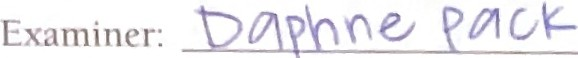 Examiner: Daphne Pack